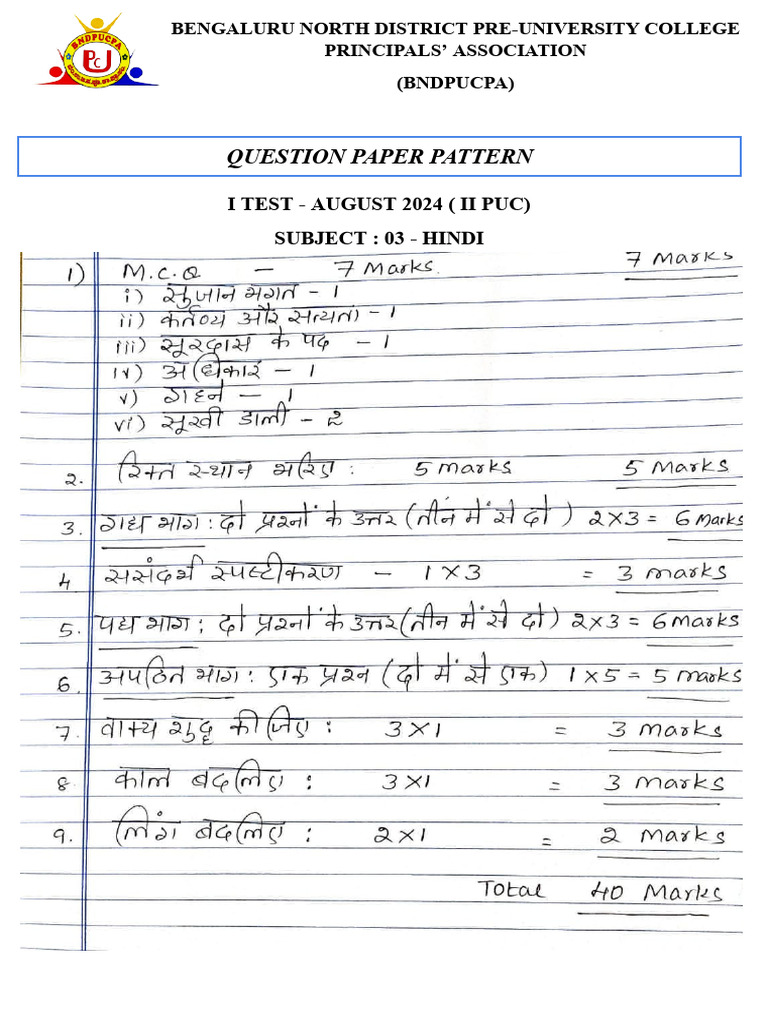 BENGALURU NORTH DISTRICT PRE-UNIVERSITY COLLEGE
PRINCIPALS’ ASSOCIATION
(BNDPUCPA)
BNDPUCPA
PUC
QUESTION PAPER PATTERN
I TEST - AUGUST 2024 ( II PUC)
SUBJECT : 03 - HINDI
1) M.C.Q — 7 Marks. 7 Marks
i) सुजान भगत - 1
ii) कर्तव्य और सत्यता - 1
iii) सूरदास के पद - 1
iv) अधिकार - 1
v) गहने — 1
vi) सूखी डाली - 2
2. रिक्त स्थान भरिए : 5 marks 5 Marks
3. गद्य भाग : दो प्रश्नों के उत्तर (तीन में से दो ) 2 x 3 = 6 Marks
4 ससंदर्भ स्पष्टीकरण - 1 x 3 = 3 marks
5. पद्य भाग : दो प्रश्नों के उत्तर (तीन में से दो) 2 x 3 = 6 marks
6. अपठित भाग : एक प्रश्न (दो में से एक) 1 x 5 = 5 marks
7. वाक्य शुद्ध कीजिए : 3 x 1 = 3 marks
8. काल बदलिए : 3 x 1 = 3 marks
9. लिंग बदलिए : 2 x 1 = 2 marks
Total 40 Marks